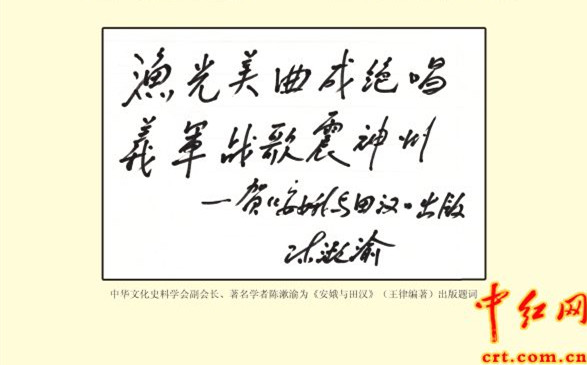 渔光美曲成绝唱
義軍战歌震神州
—贺《安娥与田汉》出版
陈漱渝
中华文化史料学会副会长、著名学者陈漱渝为《安娥与田汉》（王律编著）出版题词
中红网
crt.com.cn